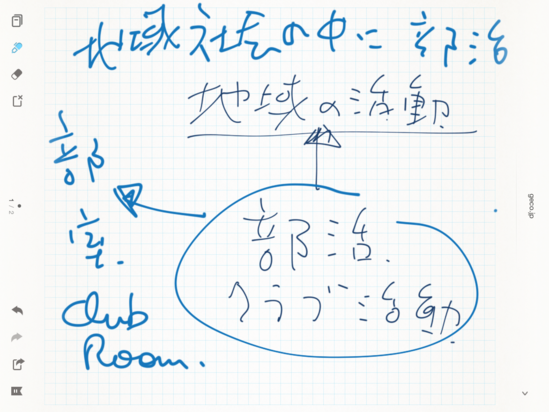 地域社会の中に部活
地域の活動
部室.
Club
Room.
部活.
クラブ活動.
1/2
geco.jp